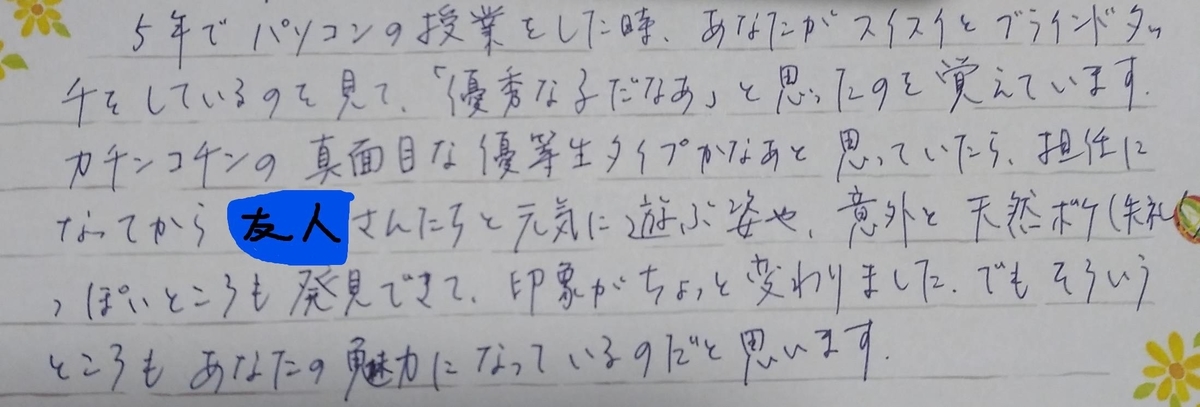 5年でパソコンの授業をした時、あなたがスイスイとブラインドタッ
チをしているのを見て、「優秀な子だなあ」と思ったのを覚えています。
カチンコチンの真面目な優等生タイプかなあと思っていたら、担任に
なってから友人さんたちと元気に遊ぶ姿や、意外と天然ボケ(失礼
っぽいところも発見できて、印象がちょっと変わりました。でもそういう
ところもあなたの魅力になっているのだと思います。